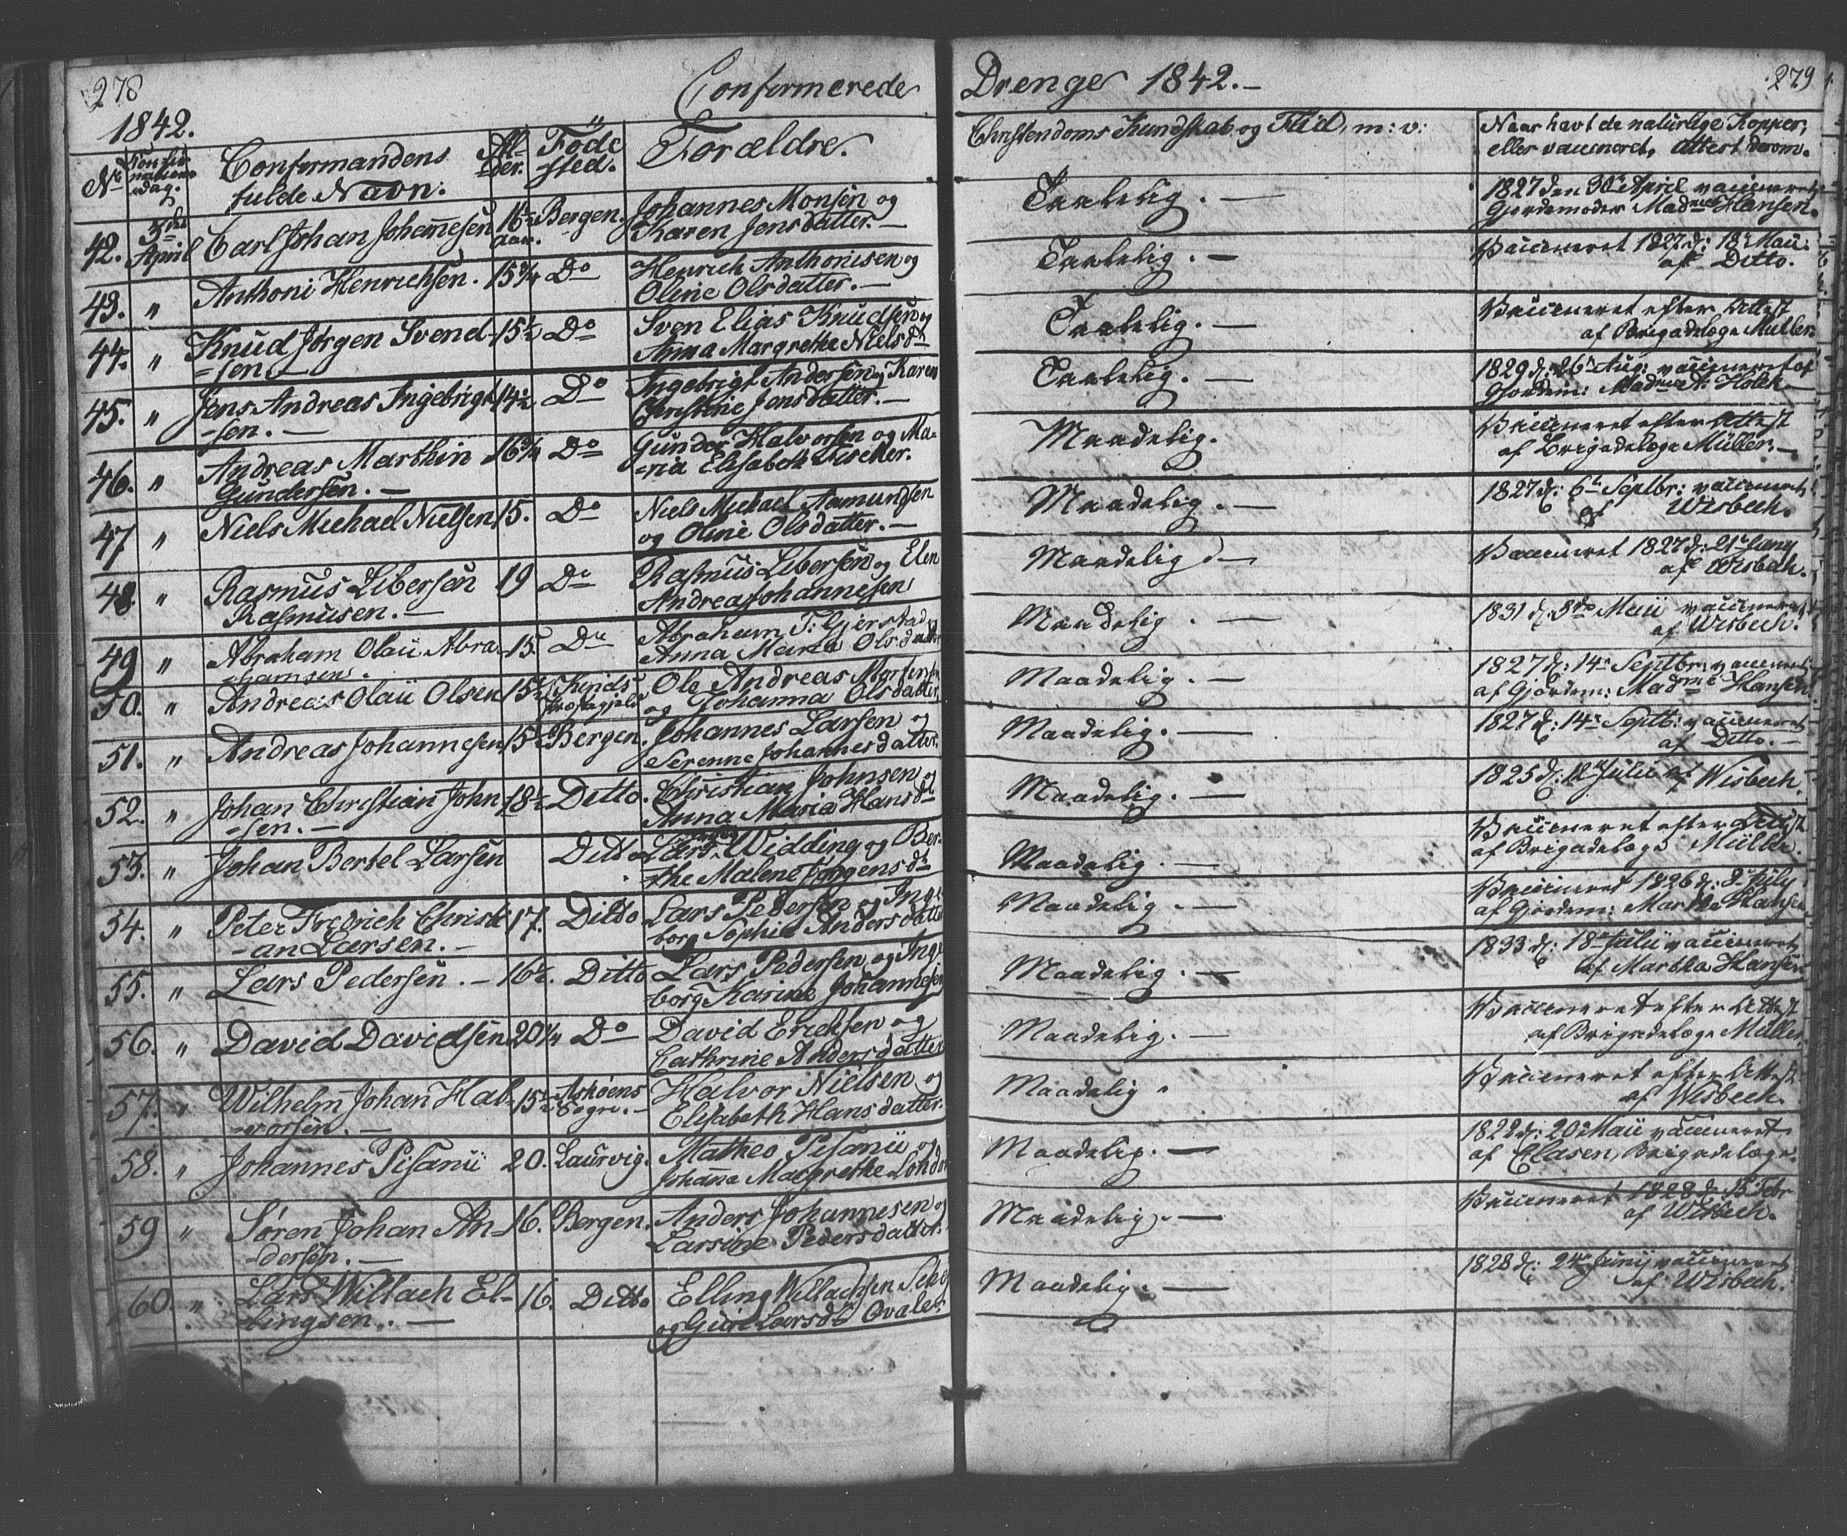 278
Confirmerede
Drenge 1842.-
279
1842.
No
Confirmations dag.
Confirmandens fulde Navn.
Alder.
Føde sted.
Forældre.
Christendoms Kundskab og Flid, m: v:
Naar havt de naturlige Kopper, eller vaccineret, Attest derom.
42. 3die April Carl Johan Johannesen 16½ aar. Bergen. Johannes Monsen og Karen Jensdatter. — Taalelig. — 1827 den 30te April vaccineret
Gjordemoder Madme Hansen.
43. " Anthoni Henrichsen. 15¾ Do Henrich Anthonisen og
Oline Olsdatter. — Taalelig. — Vaccineret 1827 d: 18de Mai
af Ditto.
44. " Knud Jørgen Svend- 15½ Do Sven Elias Knudsen og
-sen — Anna Margrethe Nielsdtr Taalelig. — Vaccineret efter Attest
af Brigadelæge Müller
45. " Jens Andreas Ingebrigt 14½ Do Ingebrigt Andersen og Karen
-sen. — Christine Jensdatter. — Taalelig. — 1829 d: 26de Aug: vaccineret af
Gjordem: Madme A: Holck —
46. " Andreas Marthin 16¾ Do Gunder Halvorsen og Ma-
Gundersen. — -ria Elisabeth Fischer. Maadelig. Vaccineret efter Attest
af Brigadelæge Müller. —
47 " Niels Michael Nielsen 15. Do Niels Michael Aamundsen
og Oline Olsdatter. — Maadelig. — 1827 d: 6te Septbr: vaccineret
af Wisbech.
48. " Rasmus Libersen 19 Do Rasmus Libersen og Elen
Rasmusen. — Andreas Johannesen Maadelig. — Vaccineret 1827 d: 21de Juny
af Wisbech.
49 " Abraham Olaii Abra- 15. Do Abraham T: Gjerstad
-hamsen. Anna Maria Olsdatter Maadelig. — 1831 d: 3die Maii vaccineret
af Wisbech.
50. " Andreas Olaii Olsen 15½ Kinds Præstegjeld Ole Andreas Mortensen
og Johanna Olsdatter Maadelig. — 1827 d: 14de Septbr: vaccineret
af Gjordem: Madme Hansen.
51. " Andreas Johannesen 15½ Bergen. Johannes Larsen og
Serenne Johannesdatter. Maadelig. — 1827 d: 14de Septb: vaccineret
af Ditto. —
52. " Johan Christian John 18½ Ditto. Christian Johnsen og
-sen. — Anna Maria Hansdtr Maadelig. — 1825 d: 12te Julii af Wisbech.
53. " Johan Bertel Larsen Ditto Lars Widding og Ber-
-the Malene Jørgensdtr Maadelig. — Vaccineret efter Attest
af Brigadelæge Müller.
54. " Peter Fredrich Christi 17. Ditto Lars Pedersen og Inge
-an Larsen. — borg Sophie Andersdatter Maadelig. — Vaccineret 1826 d: July
af Gjordem: Martha Hansen
55. " Lars Pedersen. — 16½. Ditto Lars Pedersen og Inge
borg Karine Johannesen Maadelig. — 1833 d: 18de Julii vaccineret
af Martha Hansen
56. " David Davidsen 20¼ Do David Ericksen og
Cathrine Andersdatter Maadelig. — Vaccineret efter Attest
af Brigadelæge Müller
57. " Wilhelm Johan Hal- 15½ Askøens Sogn. — Halvor Nielsen og
-vorsen. — Elisabeth Hansdatter. Maadelig. Vaccineret efter Attest
af Wisbech.
58. " Johannes Pisanii 20. Laurvig. Matheo Pisanii og
Johanne Margrethe Maadelig. — 1822 d: 20de Maii vaccineret
af Clasen, Brigadelæge.
59 " Søren Johan An- 16. Bergen. Anders Johannesen og
-dersen. — Larsine Pedersdatter. Maadelig. — Vaccineret 1828 d: 15 Febr
af Wisbech.
60. " Lars Willach El- 16. Ditto Elling Willachsen
-lingsen. — og Guri Larsdtr Ovale: Maadelig. — 1828 d: 24de Junij vaccineret
af Wisbech.